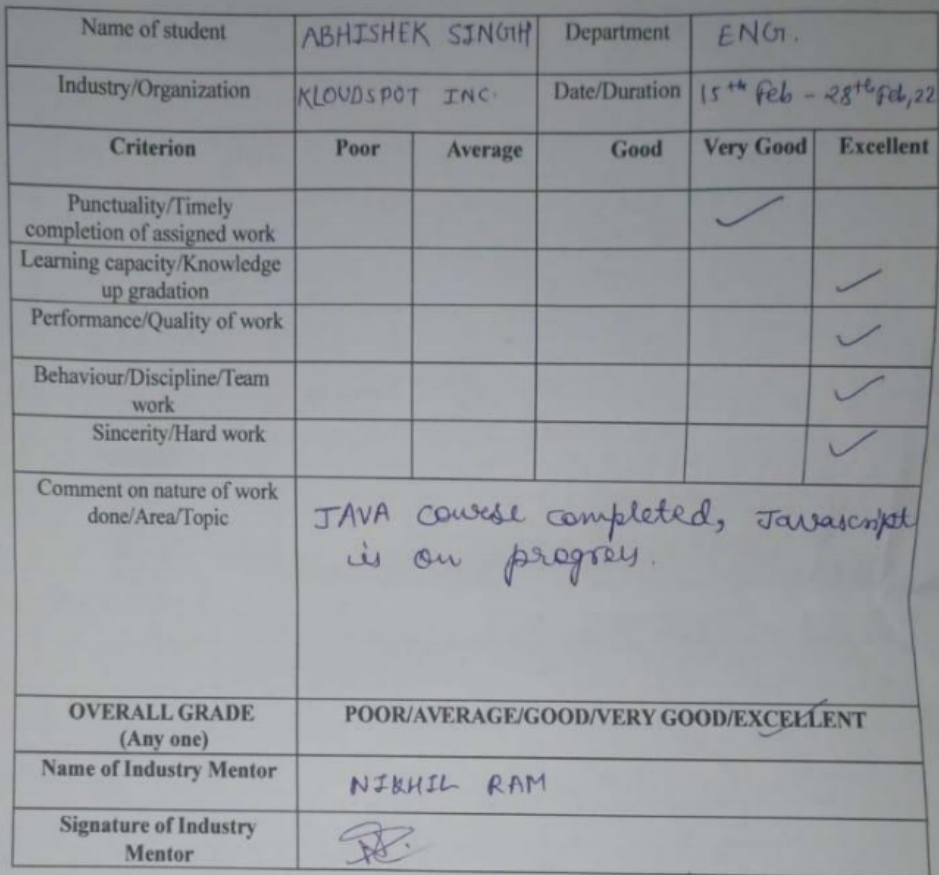 Name of student ABHISHEK SINGH Department ENG.
Industry/Organization KLOUDSPOT INC. Date/Duration 15th Feb - 28th Feb, 22
Criterion Poor Average Good Very Good Excellent
Punctuality/Timely
completion of assigned work
Learning capacity/Knowledge
up gradation
Performance/Quality of work
Behaviour/Discipline/Team
work
Sincerity/Hard work
Comment on nature of work
done/Area/Topic
JAVA course completed, Javascript
is on progress.
OVERALL GRADE
(Any one)
POOR/AVERAGE/GOOD/VERY GOOD/EXCELLENT
Name of Industry Mentor
NIKHIL RAM
Signature of Industry
Mentor